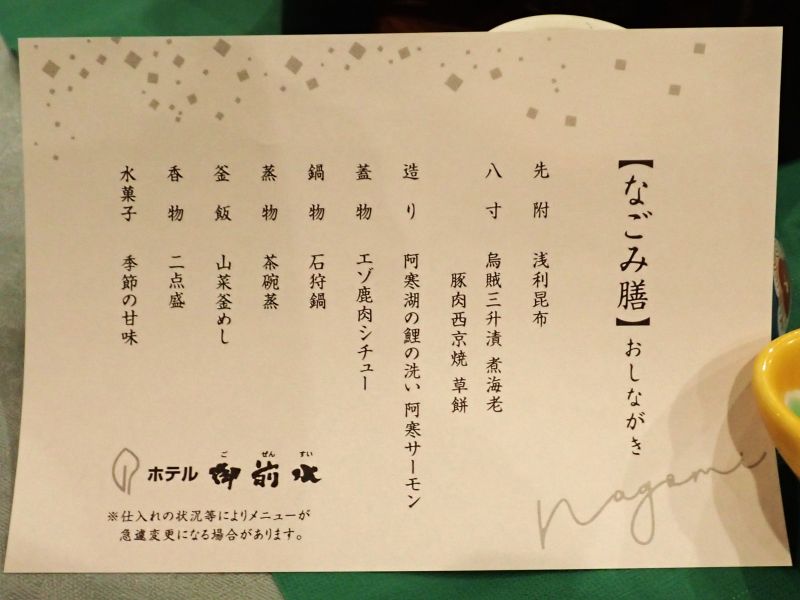 【なごみ膳】おしながき
先附 浅利昆布
八寸 烏賊三升漬 煮海老
豚肉西京焼 草餅
造り 阿寒湖の鯉の洗い 阿寒サーモン
蓋物 エゾ鹿肉シチュー
鍋物 石狩鍋
蒸物 茶碗蒸
釜飯 山菜釜めし
香物 二点盛
水菓子 季節の甘味
Nagomi
ごぜんすい
ホテル 御前水
※仕入れの状況等によりメニューが
急遽変更になる場合があります。